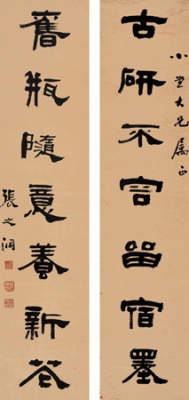 小大兄属正
古研不容留宿墨
舊瓶隨意養新花
張之洞